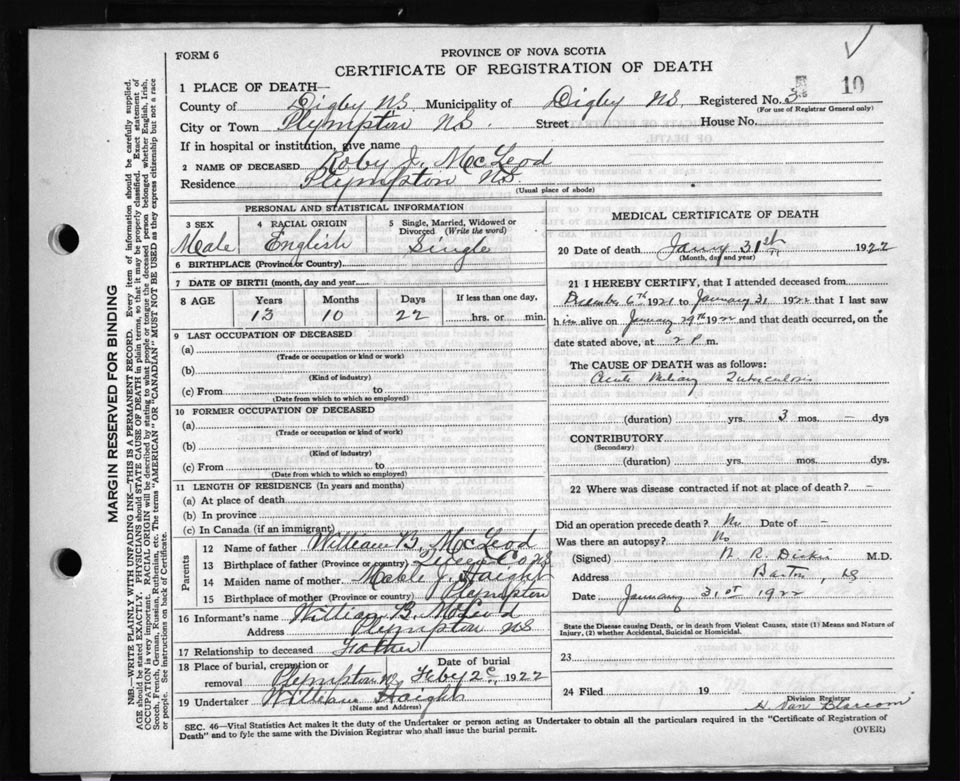 FORM 6
PROVINCE OF NOVA SCOTIA
CERTIFICATE OF REGISTRATION OF DEATH
10
1 PLACE OF DEATH—
County of Digby NS Municipality of Digby NS Registered No. 3
(For use of Registrar General only)
City or Town Plympton NS. Street House No.
If in hospital or institution, give name
2 NAME OF DECEASED Roby J. McLeod
Residence Plympton NS.
(Usual place of abode)
PERSONAL AND STATISTICAL INFORMATION
3 SEX Male
4 RACIAL ORIGIN English
5 Single, Married, Widowed or Divorced (Write the word) Single
6 BIRTHPLACE (Province or Country)
7 DATE OF BIRTH (month, day and year)
8 AGE Years Months Days If less than one day,
13 10 22 hrs. or min.
9 LAST OCCUPATION OF DECEASED
(a)
(Trade or occupation or kind or work)
(b)
(Kind of industry)
(c) From to
(Date from which to which so employed)
10 FORMER OCCUPATION OF DECEASED
(a)
(Trade or occupation or kind of work)
(b)
(Kind of industry)
(c) From to
(Date from which to which so employed)
11 LENGTH OF RESIDENCE (In years and months)
(a) At place of death
(b) In province
(c) In Canada (if an immigrant)
Parents
12 Name of father William B. McLeod
13 Birthplace of father (Province or country) Co NS
14 Maiden name of mother Mable J. Haight
15 Birthplace of mother (Province or country) Plympton
16 Informant's name William B. McLeod
Address Plympton NS
17 Relationship to deceased Father
18 Place of burial, cremation or removal Plympton NS Date of burial Feby 2 1922
19 Undertaker William Haight
(Name and Address)
MEDICAL CERTIFICATE OF DEATH
20 Date of death Janry 31st 1922
(Month, day and year)
21 I HEREBY CERTIFY, that I attended deceased from
December 6th 1921 to January 31 1922 that I last saw
h im alive on January 29th 1922 and that death occurred, on the
date stated above, at 2 P m.
The CAUSE OF DEATH was as follows:
Acute Miliary Tuberculosis
(duration) yrs. 3 mos. – dys
CONTRIBUTORY
(Secondary)
(duration) yrs. mos. dys.
22 Where was disease contracted if not at place of death? –
Did an operation precede death? No Date of –
Was there an autopsy? No
(Signed) R. M.D.
Address Barton,
Date January 31st 1922
State the Disease causing Death, or in death from Violent Causes, state (1) Means and Nature of Injury, (2) whether Accidental, Suicidal or Homicidal.
23
24 Filed 19
Division Registrar
H. Van Blarcom
SEC. 46—Vital Statistics Act makes it the duty of the Undertaker or person acting as Undertaker to obtain all the particulars required in the "Certificate of Registration of
Death" and to fyle the same with the Division Registrar who shall issue the burial permit.
(OVER)
MARGIN RESERVED FOR BINDING
N.B.—WRITE PLAINLY, WITH UNFADING INK—THIS IS A PERMANENT RECORD. Every item of information should be carefully supplied.
AGE should be stated EXACTLY. PHYSICIANS should STATE CAUSE OF DEATH in plain terms, so that it may be properly classified. Exact statement of
OCCUPATION is very important. RACIAL ORIGIN will be described by stating to what people or tongue the deceased person belonged whether English, Irish,
Scotch, French, German, Russian, Ruthenian, etc. The terms "AMERICAN" OR "CANADIAN" MUST NOT BE USED as they express citizenship but not a race
or people. See instructions on back of Certificate.